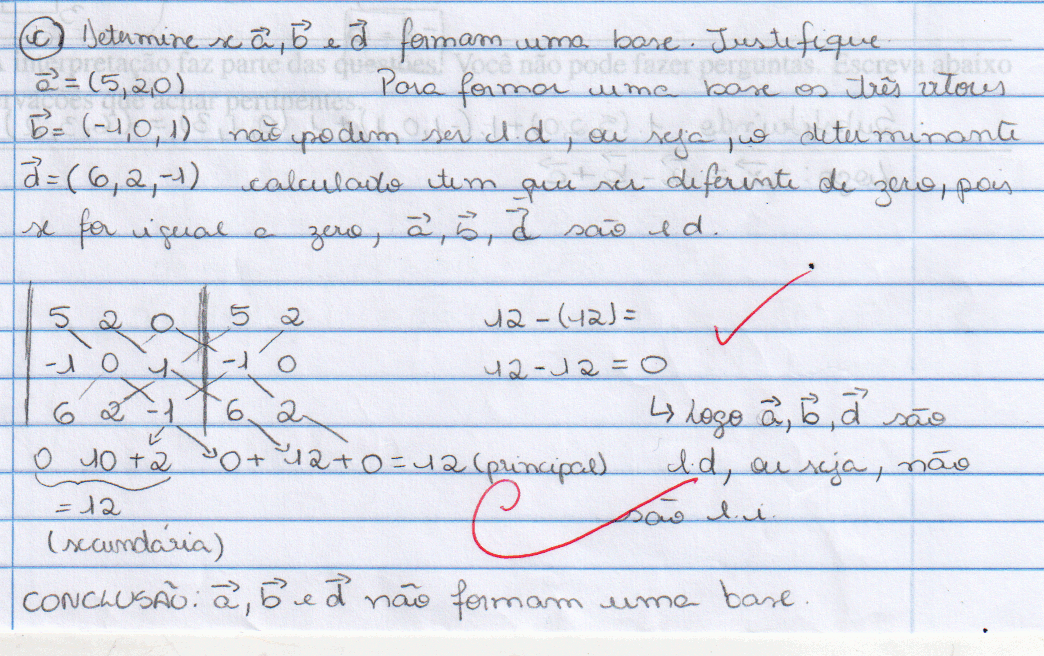 c) Determine se a⃗, b⃗ e d⃗ formam uma base. Justifique
a⃗ = (5, 2, 0) Para formar uma base os três vetores
b⃗ = (-1, 0, 1) não podem ser l d, ou seja, o determinante
d⃗ = (6, 2, -1) calculado tem que ser diferente de zero, pois
se for igual a zero, a⃗, b⃗, d⃗ são l d.
5 2 0 | 5 2 12 - (12) =
-1 0 1 | -1 0 12 - 12 = 0
6 2 -1 | 6 2 ↳ logo a⃗, b⃗, d⃗ são
0 10 + 2 0 + 12 + 0 = 12 (principal) l d, ou seja, não
= 12 são l. i.
(secundária)
CONCLUSÃO: a⃗, b⃗ e d⃗ não formam uma base.